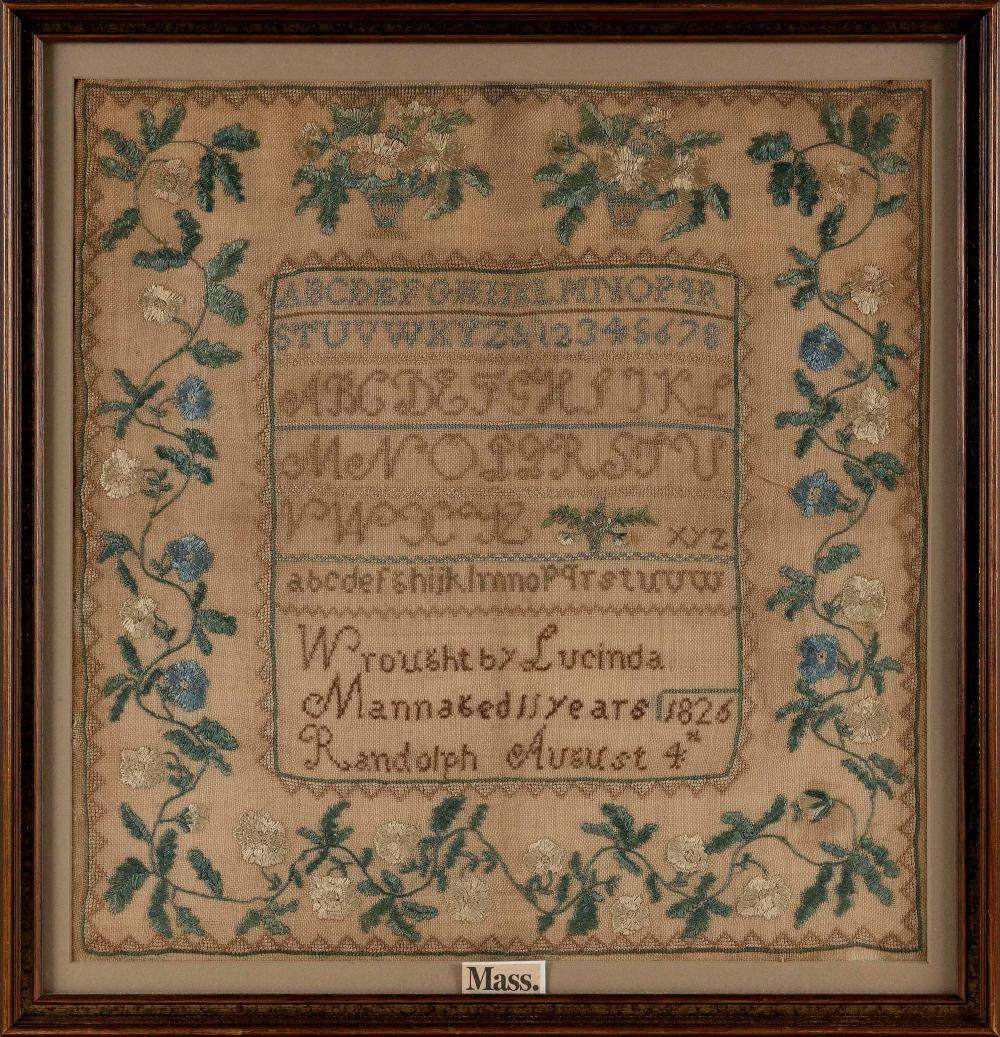 ABCDEFGHIJKLMNOPqR
STUVWXYZ&12345678
ABCDEFGHIJKL
MNOPQRSTU
VWXYZ
xyz
abcdefghijklmnopqrstuvw
Wrought by Lucinda
Mann aged 11 years 1826
Randolph August 4th
Mass.